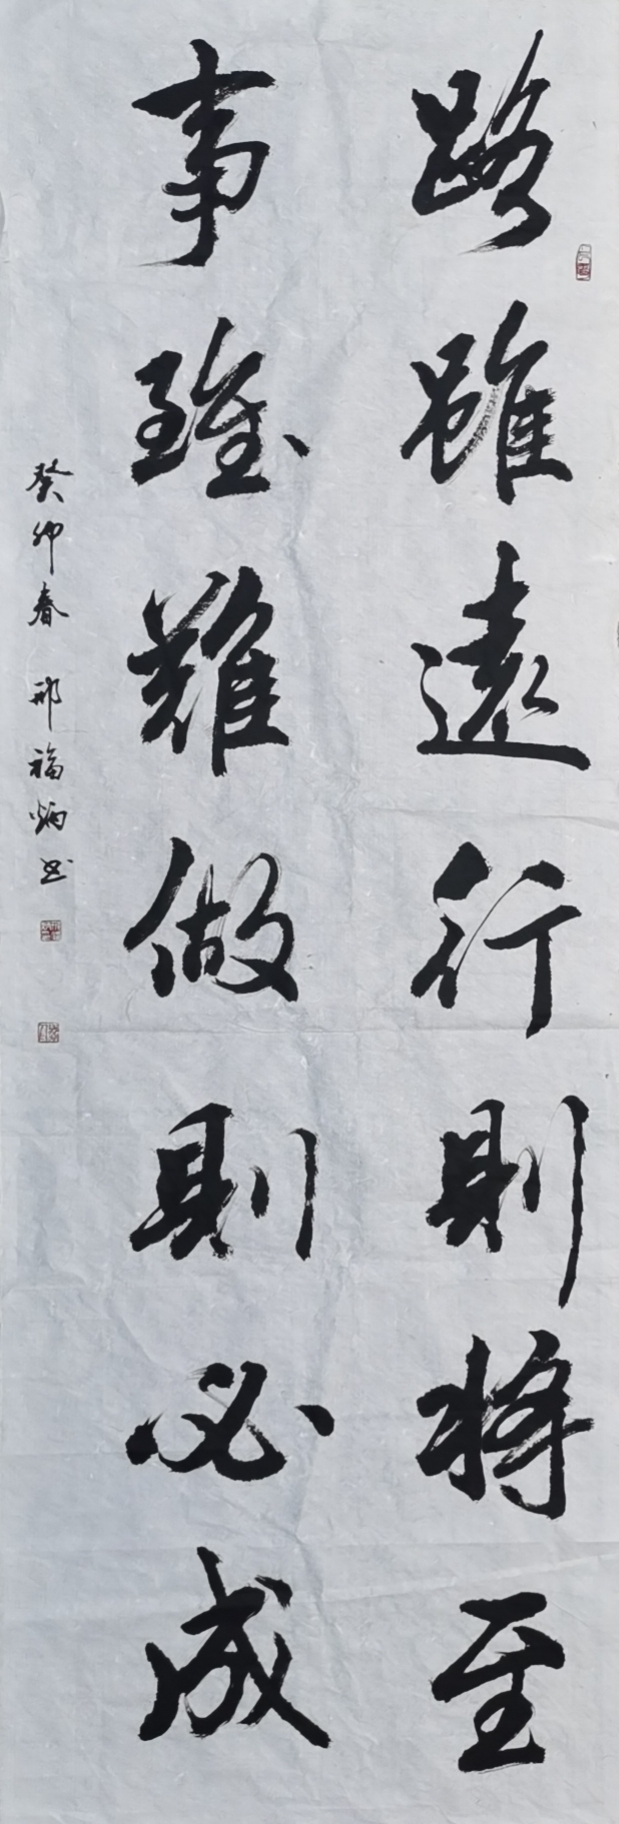 路雖遠行則将至
事雖難做則必成
癸卯春 邢福炳书